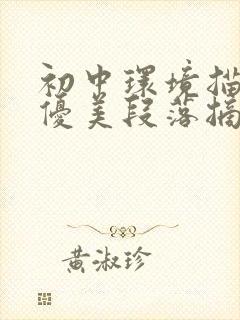 初中環境描
優美段落摘
黃淑珍